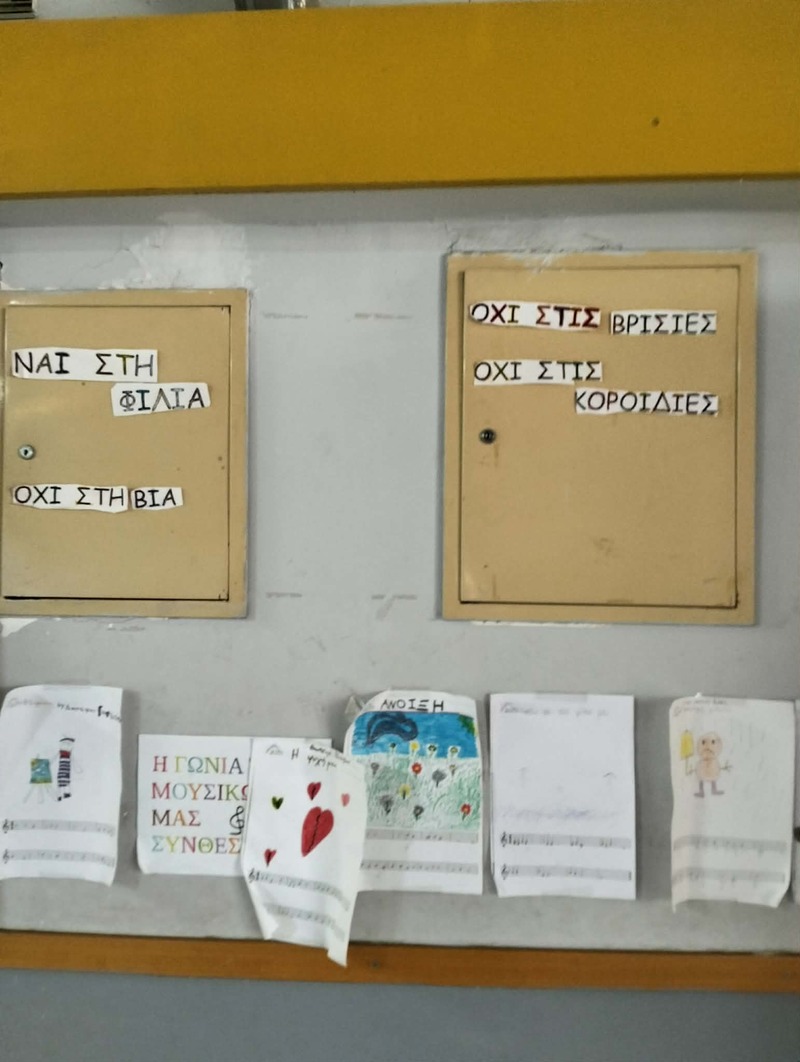 ΝΑΙ ΣΤΗ
ΦΙΛΙΑ
ΟΧΙ ΣΤΗ ΒΙΑ
ΟΧΙ ΣΤΙΣ ΒΡΙΣΙΕΣ
ΟΧΙ ΣΤΙΣ
ΚΟΡΟΙΔΙΕΣ
Η ΓΩΝΙΑ
ΜΟΥΣΙΚ
ΜΑΣ
ΣΥΝΘΕΣ
Η
ΑΝΟΙΞΗ